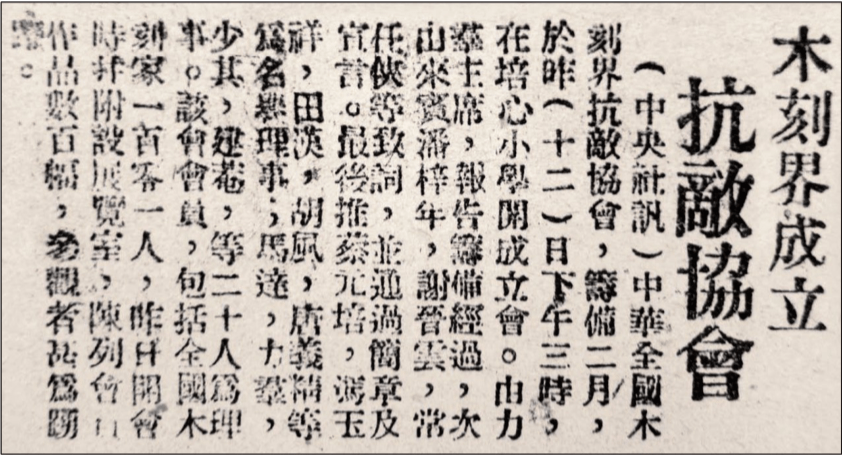 木刻界成立
抗敵協會
（中央社訊）中華全國木
刻界抗敵協會，籌備二月，
於昨（十二）日下午三時，
在培心小學開成立會。由力
羣主席，報告籌備經過，次
由來賓潘梓年，謝晉雲，常
任俠等致詞，並通過簡章及
宣言。最後推蔡元培，馮玉
祥，田漢，胡風，唐義精等
爲名譽理事；馬達，力羣，
少其，建菴，等二十人爲理
事。該會會員，包括全國木
刻家一百零一人，昨日開會
時并附設展覽室，陳列會員
作品數百幅，參觀者甚爲踴